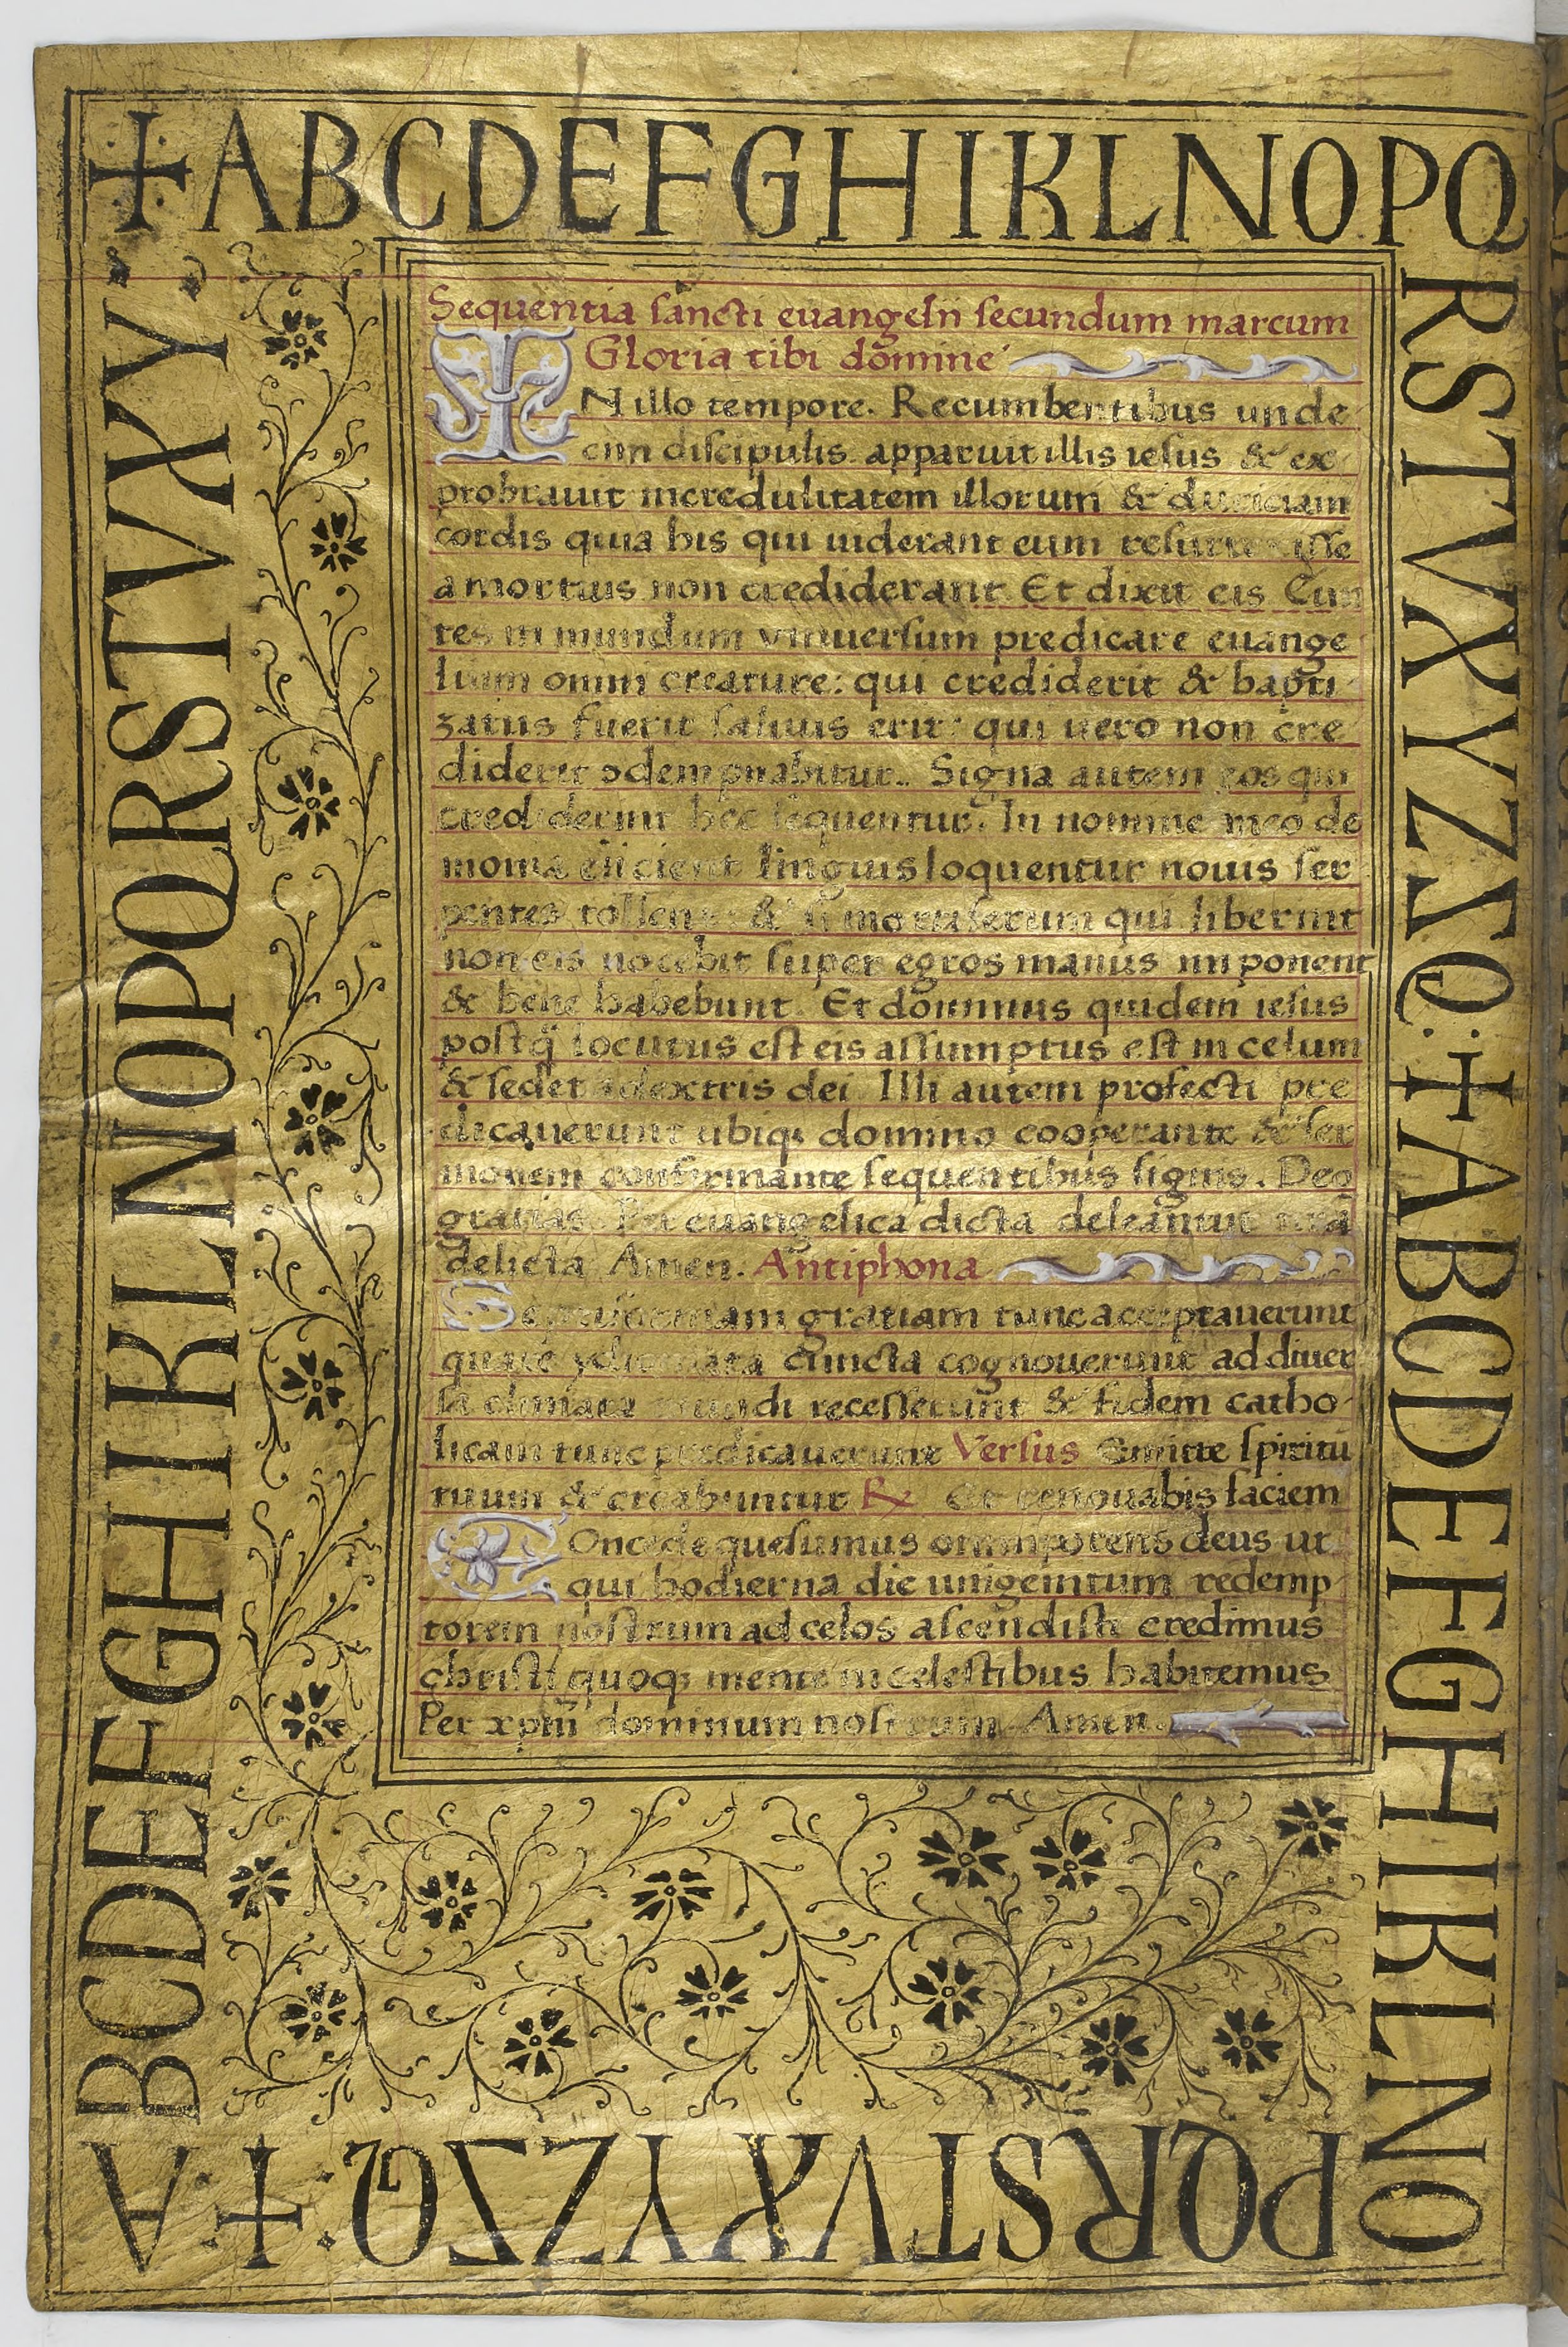 +ABCDEFGHIKLNOPQ
RSTVXYZƵQ:+ABCDEFGHIKLNO
PQRSTVXYZƵQ:+:A
BCDEFGHIKLNOPQRSTVXY:
Sequentia sancti euangelii secundum marcum
Gloria tibi domine
IN illo tempore. Recumbentibus unde
cim discipulis apparuit illis iesus & ex
probrauit incredulitatem illorum & duriciam
cordis quia his qui uiderant eum resurrexisse
a mortuis non crediderant Et dixit eis Eun
tes in mundum vniuersum predicare euange
lium omni creature: qui crediderit & bapti
zatus fuerit saluus erit: qui uero non cre
diderit ↄdempnabitur.. Signa autem eos qui
crediderint hec sequentur. In nomine meo de
monia eiicient linguis loquentur nouis ser
pentes tollent & si mortiferum qui liberint
non eis nocebit super egros manus imponent
& bene habebunt Et dominus quidem iesus
postq̃ locutus est eis assumptus est in celum
& sedet adextris dei Illi autem profecti pre
dicauerunt ubiq; domino cooperante & ser
monem confirmante sequentibus signis. Deo
gratias. Per euangelica dicta deleantur nr̃a
delicta Amen. Antiphona
Septiformam gratiam tunc acceptauerunt
quare ydiomata cuncta cognouerunt ad diuer
sa climata mundi recesserunt & fidem catho
licam tunc predicauerunt Versus Emitte spiritu
tuum & creabuntur ℞ Et renouabis faciem
COncede quesumus omnipotens deus ut
qui hodierna die unigenitum redemp
torem nostrum ad celos ascendisti credimus
christi quoq; mente in celestibus habitemus
Per xpm̃ dominum nostrum Amen.